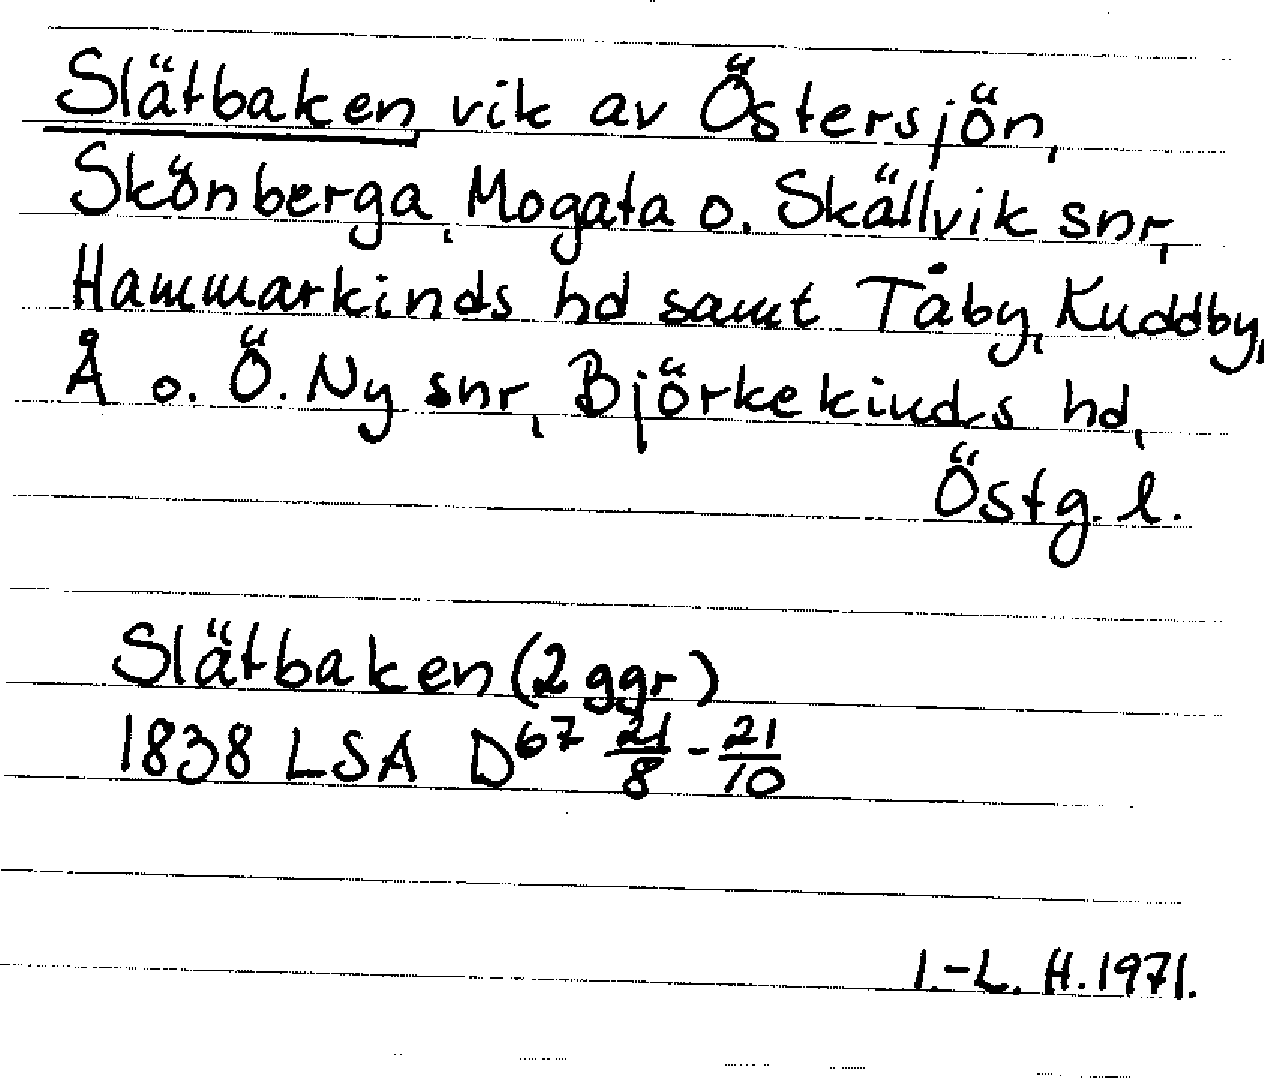 Slätbaken vik av Östersjön,
Skönberga, Mogata o. Skällvik snr,
Hammarkinds hd samt Tåby, Kuddby,
Å o. Ö. Ny snr, Björkekinds hd,
Östg. l.
Slätbaken (2 ggr)
1838 LSA D⁶⁷ 21/8 - 21/10
I.-L. H. 1971.